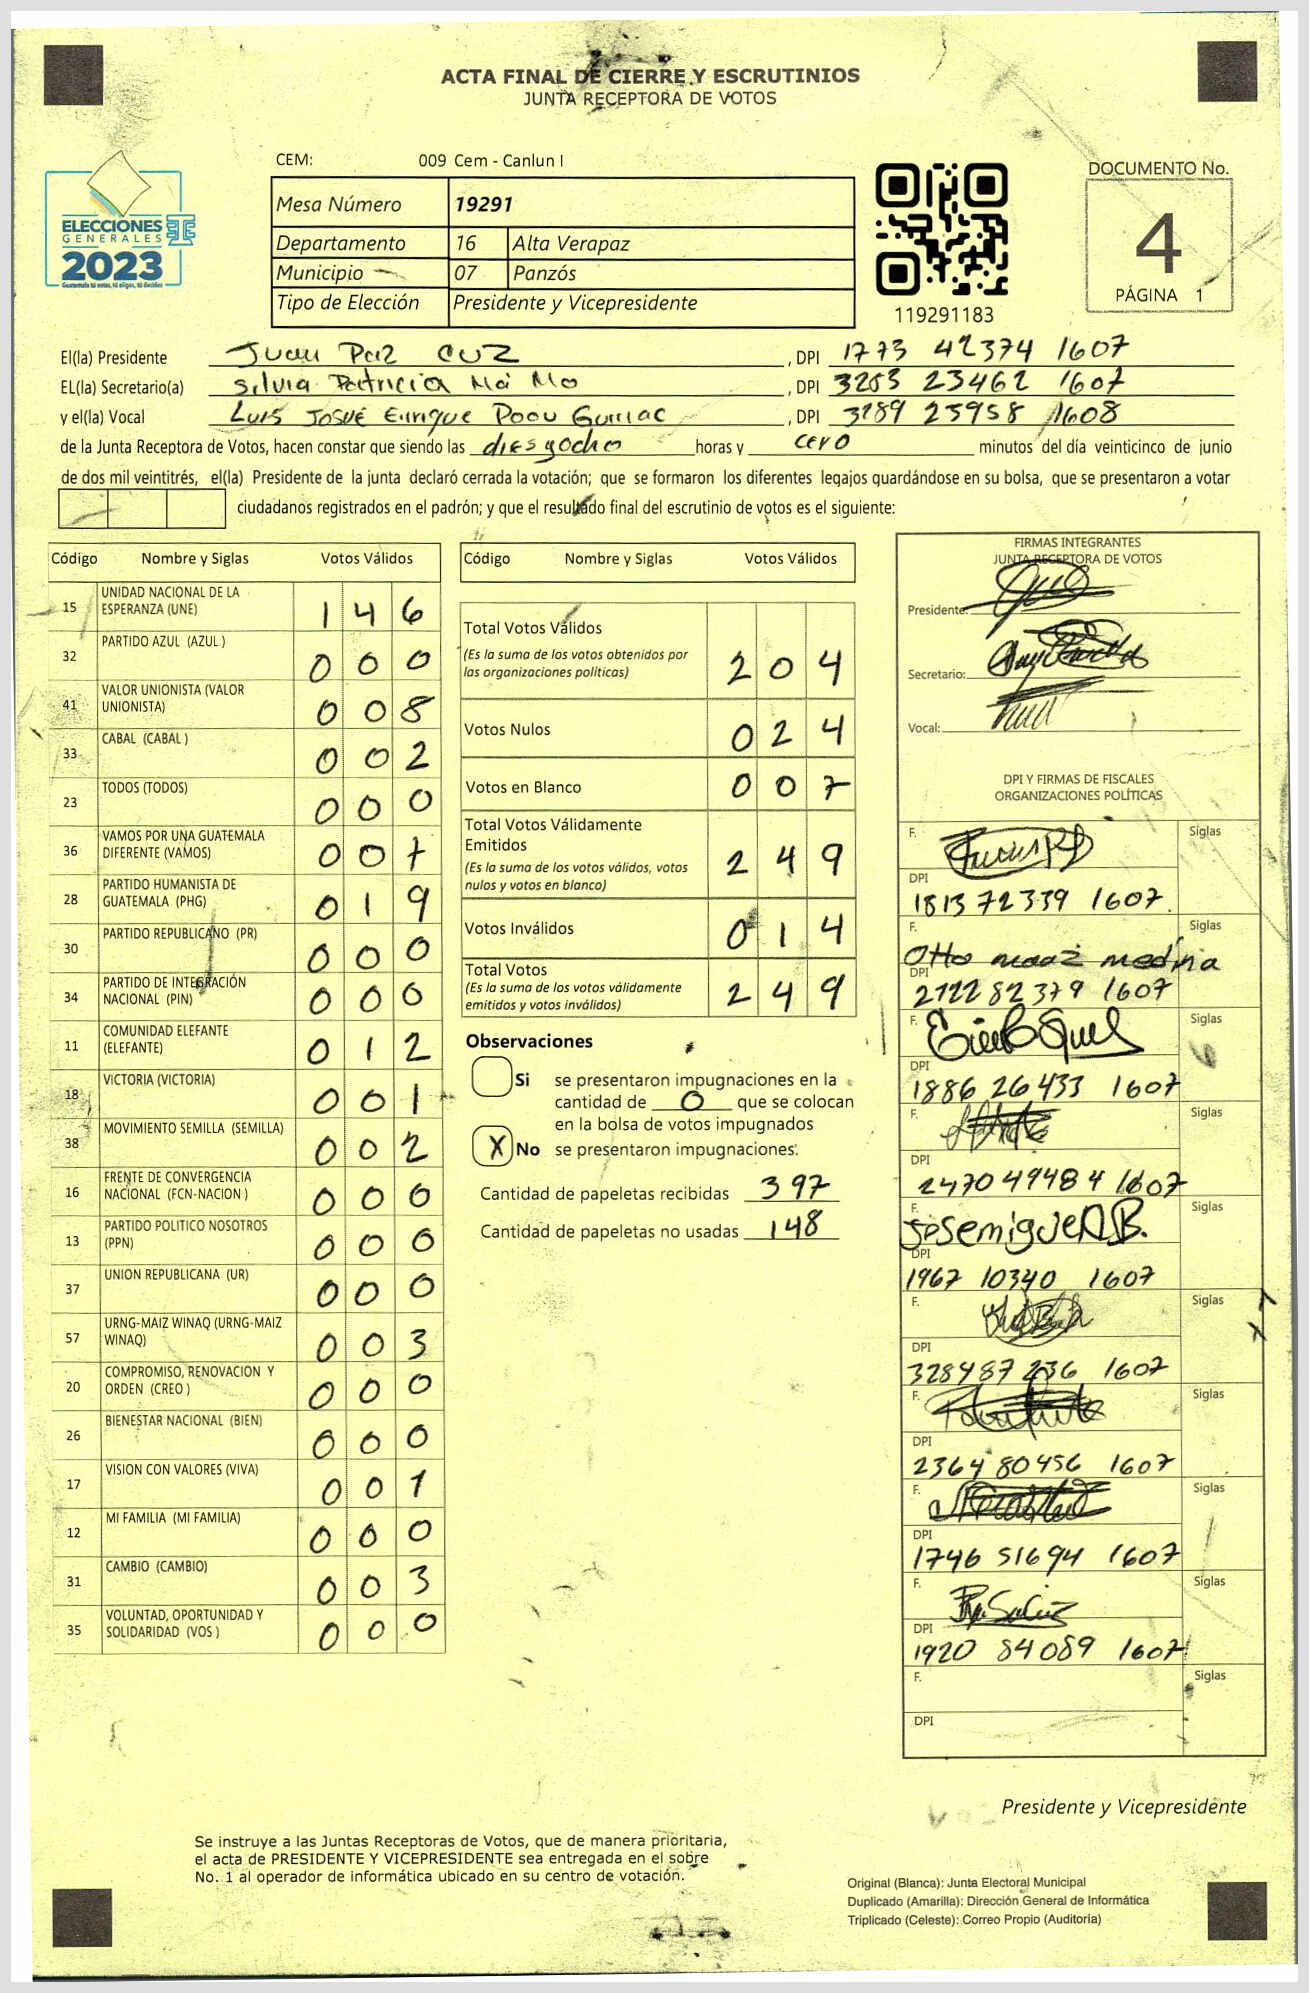 ACTA FINAL DE CIERRE Y ESCRUTINIOS
JUNTA RECEPTORA DE VOTOS
CEM: 009 Cem - Canlun I
ELECCIONES
GENERALES
2023
Guatemala tú votas, tú eliges, tú decides
Mesa Número 19291
Departamento 16 Alta Verapaz
Municipio 07 Panzós
Tipo de Elección Presidente y Vicepresidente
119291183
DOCUMENTO No.
4
PÁGINA 1
El(la) Presidente Juan Paz CUZ, DPI 1773 42374 1607
EL(la) Secretario(a) Silvia Patricia Má Mo, DPI 3253 23462 1607
y el(la) Vocal Luis Josué Enrique Poou, DPI 3289 23958 1608
de la Junta Receptora de Votos, hacen constar que siendo las diesyocho horas y cero minutos del día veinticinco de junio
de dos mil veintitrés, el(la) Presidente de la junta declaró cerrada la votación; que se formaron los diferentes legajos guardándose en su bolsa, que se presentaron a votar
ciudadanos registrados en el padrón; y que el resultado final del escrutinio de votos es el siguiente:
Código Nombre y Siglas Votos Válidos
15 UNIDAD NACIONAL DE LA ESPERANZA (UNE) 1 4 6
32 PARTIDO AZUL (AZUL ) 0 0 0
41 VALOR UNIONISTA (VALOR UNIONISTA) 0 0 8
33 CABAL (CABAL ) 0 0 2
23 TODOS (TODOS) 0 0 0
36 VAMOS POR UNA GUATEMALA DIFERENTE (VAMOS) 0 0 7
28 PARTIDO HUMANISTA DE GUATEMALA (PHG) 0 1 9
30 PARTIDO REPUBLICANO (PR) 0 0 0
34 PARTIDO DE INTEGRACIÓN NACIONAL (PIN) 0 0 0
11 COMUNIDAD ELEFANTE (ELEFANTE) 0 1 2
18 VICTORIA (VICTORIA) 0 0 1
38 MOVIMIENTO SEMILLA (SEMILLA) 0 0 2
16 FRENTE DE CONVERGENCIA NACIONAL (FCN-NACION ) 0 0 0
13 PARTIDO POLITICO NOSOTROS (PPN) 0 0 0
37 UNION REPUBLICANA (UR) 0 0 0
57 URNG-MAIZ WINAQ (URNG-MAIZ WINAQ) 0 0 3
20 COMPROMISO, RENOVACION Y ORDEN (CREO ) 0 0 0
26 BIENESTAR NACIONAL (BIEN) 0 0 0
17 VISION CON VALORES (VIVA) 0 0 1
12 MI FAMILIA (MI FAMILIA) 0 0 0
31 CAMBIO (CAMBIO) 0 0 3
35 VOLUNTAD, OPORTUNIDAD Y SOLIDARIDAD (VOS ) 0 0 0
Código Nombre y Siglas Votos Válidos
Total Votos Válidos
(Es la suma de los votos obtenidos por
las organizaciones políticas) 2 0 4
Votos Nulos 0 2 4
Votos en Blanco 0 0 7
Total Votos Válidamente
Emitidos
(Es la suma de los votos válidos, votos
nulos y votos en blanco) 2 4 9
Votos Inválidos 0 1 4
Total Votos
(Es la suma de los votos válidamente
emitidos y votos inválidos) 2 4 9
Observaciones
Si se presentaron impugnaciones en la
cantidad de 0 que se colocan
en la bolsa de votos impugnados
X No se presentaron impugnaciones.
Cantidad de papeletas recibidas 397
Cantidad de papeletas no usadas 148
FIRMAS INTEGRANTES
JUNTA RECEPTORA DE VOTOS
Presidente:
Secretario:
Vocal:
DPI Y FIRMAS DE FISCALES
ORGANIZACIONES POLÍTICAS
F. Siglas
DPI
1813 72339 1607
F. Siglas
Otto medina
DPI
2722 82379 1607
F. Siglas
DPI
1886 26433 1607
F. Siglas
DPI
2470 49484 1607
F. Siglas
Josemiguel B.
DPI
1967 10340 1607
F. Siglas
DPI
328487 236 1607
F. Siglas
DPI
2364 80456 1607
F. Siglas
DPI
1746 51694 1607
F. Siglas
DPI
1920 84089 1607
F. Siglas
DPI
Presidente y Vicepresidente
Se instruye a las Juntas Receptoras de Votos, que de manera prioritaria,
el acta de PRESIDENTE Y VICEPRESIDENTE sea entregada en el sobre
No. 1 al operador de informática ubicado en su centro de votación.
Original (Blanca): Junta Electoral Municipal
Duplicado (Amarilla): Dirección General de Informática
Triplicado (Celeste): Correo Propio (Auditoría)